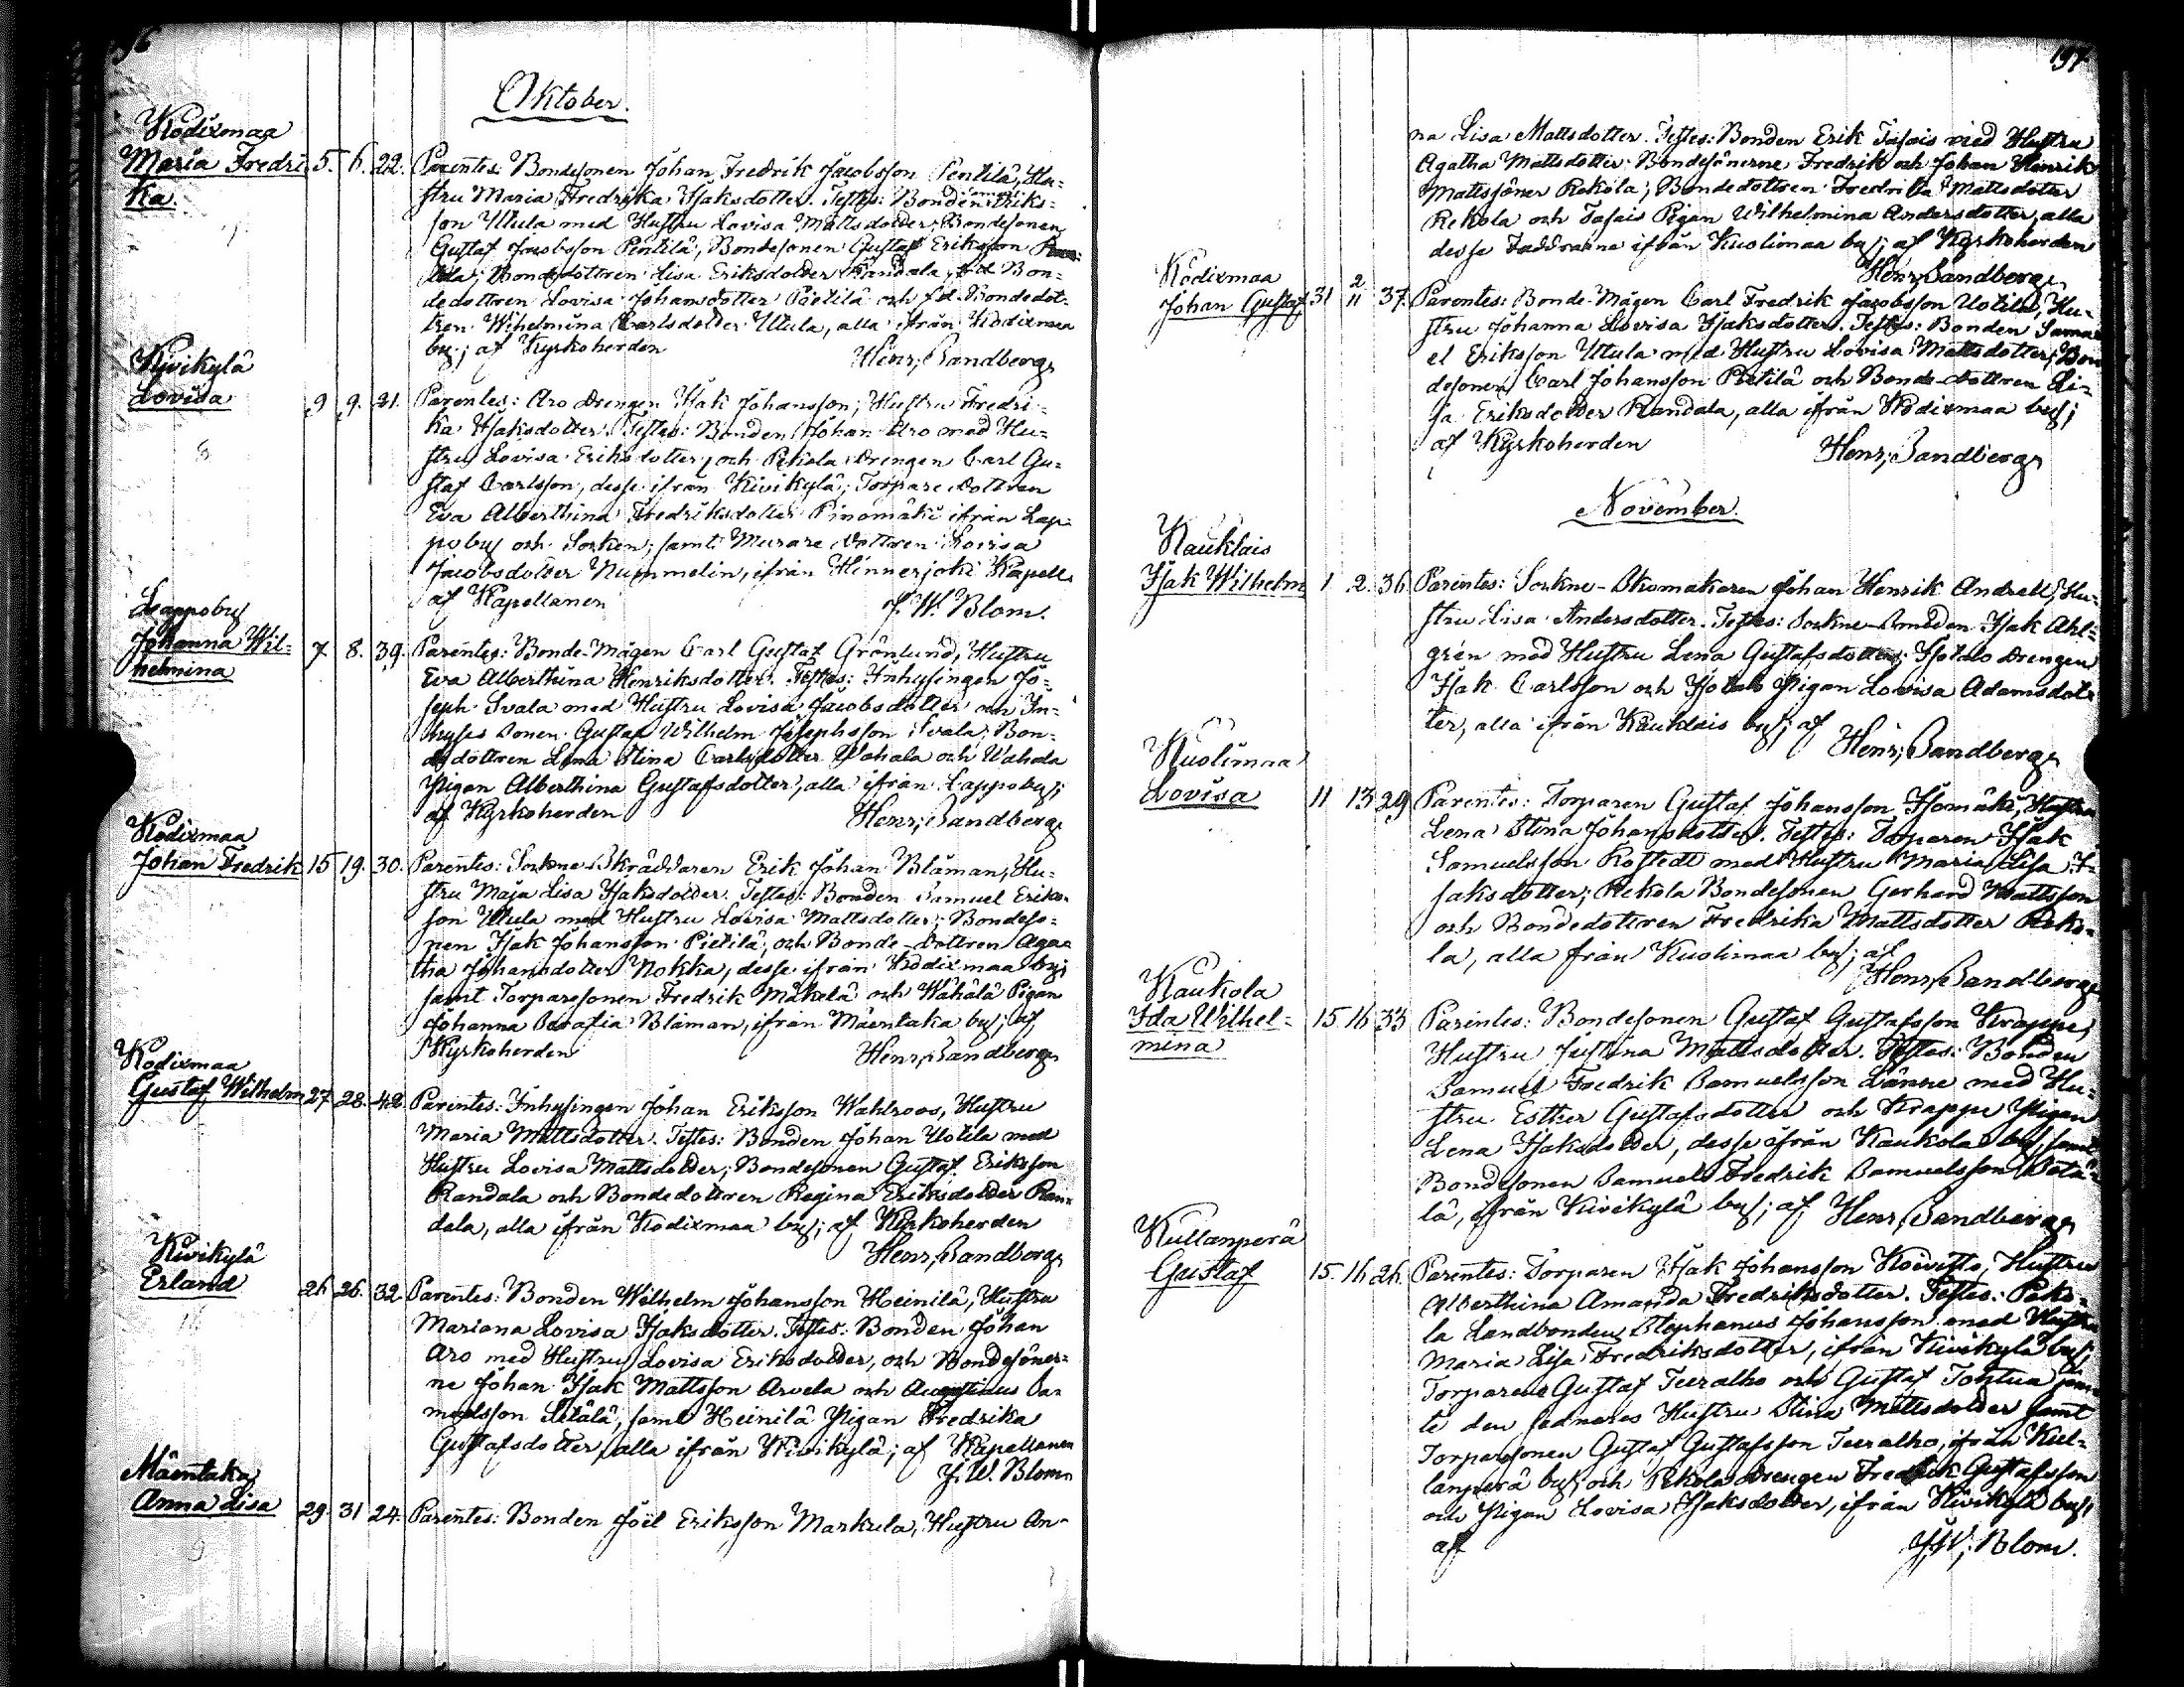 Oktober.
Kodixmaa
Maria Fredri 5. 6. 22. Parentes: Bondesonen Johan Fredrik Jacobsson Pentilä, Hu-
ka. stru Maria Fredrika Isaksdotter. Testes: Bonden Samuel Eriks-
son Utula med Hustru Lovisa Mattsdotter; Bondesonen
Gustaf Jacobsson Pentilä, Bondesonen Gustaf Eriksson Ran-
dala; Bondedottren Lisa Eriksdotter Randala, f.d. Bon-
dedottren Lovisa Johansdotter Pietilä och f.d. Bondedot-
tren Wihelmina Carlsdotter Utula, alla ifrån Kodixmaa
by; af Kyrkoherden Henr; Sandberg
Kivikylä
Lovisa 9 9. 21. Parentes: Aro Drengen Isak Johansson; Hustru Fredri-
ka Isaksdotter. Testes: Bonden Johan Aro med Hu-
stru Lovisa Eriksdotter, och Pekola Drengen Carl Gu-
staf Carlsson, desse ifrån Kivikylä; Torpare dottren
Eva Alberthina Fredriksdotter Pinomäki ifrån Lap-
po by och Socken; samt Murare dottren Lovisa
Jacobsdotter Nummelin, ifrån Hinnerjoki Kapell.
af Kapellanen J. W. Blom.
Lappoby
Johanna Wil- 7. 8. 39. Parentes: Bonde-Mågen Carl Gustaf Grönlund, Hustru
helmina Eva Alberthina Henriksdotter. Testes: Inhysingen Jo-
seph Svala med Hustru Lovisa Jacobsdotter och In-
hyses Sonen Gustaf Wilhelm Josephsson Svala; Bon-
dedottren Lena Stina Carlsdotter Wahala och Wahala
Pigan Alberthina Gustafsdotter, alla ifrån Lappoby;
af Kyrkoherden Henr; Sandberg
Kodixmaa
Johan Fredrik 15 19. 30. Parentes: Sockne-Skräddaren Erik Johan Blåman, Hu-
stru Maja Lisa Isaksdotter. Testes: Bonden Samuel Eriks-
son Utula med Hustru Lovisa Mattsdotter; Bondeso-
nen Isak Johansson Pietilä, och Bonde-dottren Aga-
tha Johansdotter Nokka, desse ifrån Kodixmaa by;
samt Torparesonen Fredrik Mäkelä och Wähälä Pigan
Johanna Serafia Blåman, ifrån Mäentaka by; af
Kyrkoherden Henr; Sandberg
Kodixmaa
Gustaf Wilhelm 27 28. 42. Parentes: Inhysingen Johan Eriksson Wahlroos, Hustru
Maria Mattsdotter. Testes: Bonden Johan Uotila med
Hustru Lovisa Mattsdotter; Bondesonen Gustaf Eriksson
Randala och Bondedottren Regina Eriksdotter Ran-
dala, alla ifrån Kodixmaa by; af Kyrkoherden
Henr; Sandberg
Kivikylä
Erland 26 26. 32. Parentes: Bonden Wilhelm Johansson Heinilä, Hustru
Mariana Lovisa Isaksdotter. Testes: Bonden Johan
Aro med Hustru Lovisa Eriksdotter, och Bondesöner-
ne Johan Isak Mattsson Arvela och Augustinus Sa-
muelsson, samt Heinilä Pigan Fredrika
Gustafsdotter, alla ifrån Kivikylä; af Kapellanen
J. W. Blom
Mäentaka
Anna Lisa 29. 31 24. Parentes: Bonden Joël Eriksson Markula, Hustru An-
197
na Lisa Mattsdotter. Testes: Bonden Erik Tasais med Hustru
Agatha Mattsdotter; Bondesönerne Fredrik och Johan Henrik
Mattssöner Rekola; Bondedottren Fredrika Mattsdotter
Rekola och Tasais Pigan Wilhelmina Andersdotter, alla
desse Faddrarne ifrån Kuolimaa by; af Kyrkoherden
Henr; Sandberg
Kodixmaa
Johan Gustaf 31 2/11 37. Parentes: Bonde-Mågen Carl Fredrik Jacobsson Uotila, Hu-
stru Johanna Lovisa Isaksdotter. Testes: Bonden Samu-
el Eriksson Utula med Hustru Lovisa Mattsdotter; Bon-
desonen Carl Johansson Pietilä och Bonde-dottren Li-
sa Eriksdotter Randala, alla ifrån Kodixmaa by;
af Kyrkoherden Henr; Sandberg
November.
Kauklais
Isak Wilhelm 1 2. 36 Parentes: Sockne-Skomakaren Johan Henrik Andrell, Hu-
stru Lisa Andersdotter. Testes: Sockne-Smeden Isak Ahl-
grén med Hustru Lena Gustafsdotter; Isotalo Drengen
Isak Carlsson och Isotalo Pigan Lovisa Adamsdot-
ter, alla ifrån Kauklais by; af
Henr; Sandberg
Kuolimaa
Lovisa 11 13 29 Parentes: Torparen Gustaf Johansson Isomäki, Hustru
Lena Stina Johansdotter. Testes: Torparen Isak
Samuelsson Rostedt med Hustru Maria Lisa I-
saksdotter; Rekola Bondesonen Gerhard Mattsson
och Bondedottren Fredrika Mattsdotter Reko-
la, alla från Kuolimaa by; af
Henr; Sandberg
Kaukola
Ida Wilhel- 15 16 33 Parentes: Bondesonen Gustaf Gustafsson Krappe,
mina Hustru Justina Mattsdotter. Testes: Bonden
Samuel Fredrik Samuelsson Länne med Hu-
stru Esther Gustafsdotter och Krappe Pigan
Lena Isaksdotter, desse ifrån Kaukola by, samt
Bondesonen Samuel Fredrik Samuelsson
lä, ifrån Kivikylä by; af Henr; Sandberg
Kullanperä
Gustaf 15. 16 26. Parentes: Torparen Isak Johansson Koivisto, Hustru
Alberthina Amanda Fredriksdotter. Testes: Peko-
la Landbonden Stephanus Johansson med Hustru
Maria Lisa Fredriksdotter, ifrån Kivikylä by;
Torparene Gustaf Teeralho och Gustaf Tontua jäm-
te den sednares Hustru Stina Mattsdotter samt
Torparesonen Gustaf Gustafsson Teeralho, ifrån Kul-
lanperä by, och Pekola Drengen Fredrik Gustafsson
och Pigan Lovisa Isaksdotter, ifrån Kivikylä by;
af J. W. Blom.